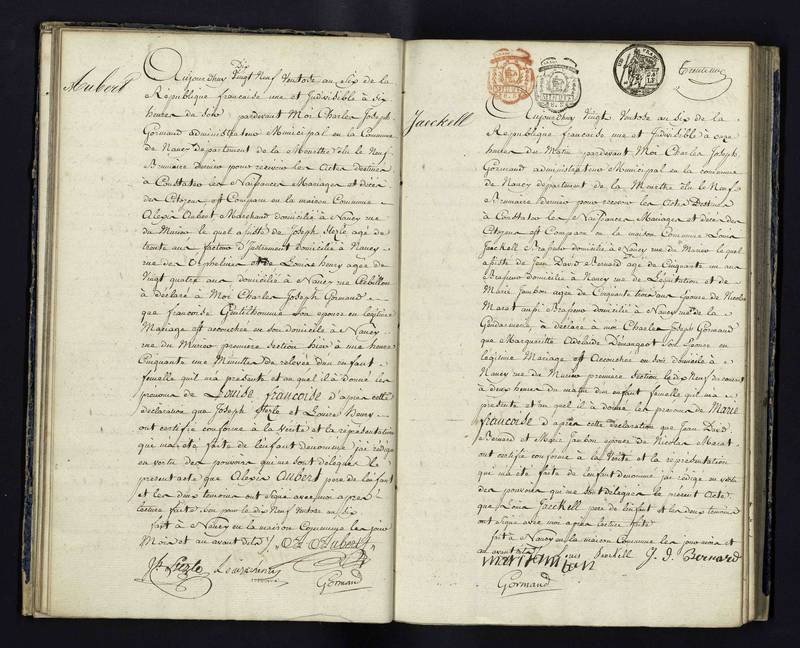 Aubert
Dix
Aujourdhuy Vingt Neuf Ventose an Six de la
Republique francaise une et Indivisible à six
heures du soir pardevant Moi Charles Joseph
Gormand administrateur Municipal en la Commune
de Nancy departement de la Meurthe élu le Neuf
Brumaire dernier pour recevoir les Actes destinés
à Constater les Naissances Mariages et décès
des Citoyens est Comparu en la maison Commune
Alexis Aubert Marchand domicilié à Nancy rue
du Murion le quel assisté de Joseph agé de
trente ans facteur d'Instrument domicilié à Nancy
rue des Orphelines et de Louise henry agée de
Vingt quatre ans domiciliée à Nancy rue
à déclaré à Moi Charles Joseph Gormand
que francoise Gentilhomme son epouse en légitime
Mariage est accouchée en son domicile à Nancy
rue du Murion premiere Section hier à une heure
Cinquante une Minuttes de relevée d'un enfant
femelle qu'il m'a présenté et au quel il à donné les
prenoms de Louise francoise d'apres cette
déclaration que Joseph et Louise henry
ont certifié conforme à la Verité et la réprésentation
qui m'a été faite de l'enfant denommé j'ai rédigé
en vertu des pouvoirs qui me sont délegués le
present acte que Alexis Aubert pere de l'enfant
et les deux temoins ont signé avec moi apres
lecture faite bon pour le dix Neuf Ventose an six
fait à Nancy en la maison Commune les jour
Mois et an avant dits
A Aubert
Louise henry
Gormand
Jaeckell
Aujourdhuy Vingt Ventose an Six de la
Republique francaise une et Indivisible à onze
heures du Matin pardevant Moi Charles Joseph
Gormand administrateur Municipal en la commune
de Nancy departement de la Meurthe élu le Neuf
Brumaire dernier pour recevoir les Actes Destinés
à Constater les Naissances Mariages et décès des
Citoyens est Comparu en la maison Commune Louis
Jaeckell Brasseur domicilié à Nancy rue du Murion le quel
assisté de Jean David Bernard agé de Cinquante un ans
Brasseur domicilié à Nancy rue de l'Equitation et de
Marie Jambon agée de Cinquante trois ans epouse de Nicolas
Marat aussi Brasseur domicilié à Nancy rue de la
Gendarmerie à déclaré à moi Charles Joseph Gormand
que Margueritte Adelaide son Epouse en
légitime Mariage est Accouchée en son domicile à
Nancy rue du Murion premiere section le dix Neuf du courant
à deux heures du matin d'un enfant femelle qu'il m'a
présenté et au quel il à donné les prenoms de Marie
francoise d'apres cette déclaration que Jean David
Bernard et Marie Jambon epouse de Nicolas Marat
ont certifié conforme à la Verité et la représentation
qui m'a été faite de l'enfant denommé j'ai rédigé en vertu
des pouvoirs qui me sont délegués le présent Acte
que Louis Jaeckell pere de l'enfant et les deux temoins
ont signé avec moi apres lecture faite
fait à Nancy en la maison Commune les jour mois et
an avant dits
Louis Jaeckell
J. D. Bernard
Gormand